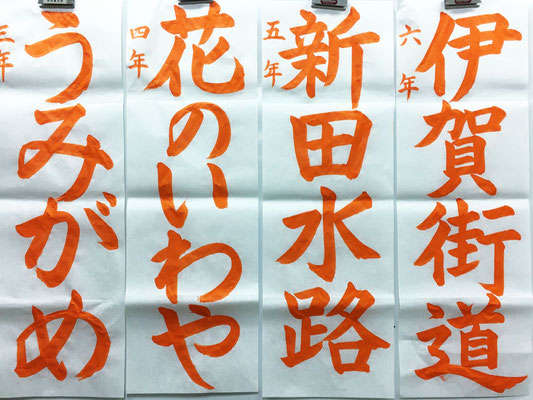 伊賀街道
六年
新田水路
五年
花のいわや
四年
うみがめ
三年